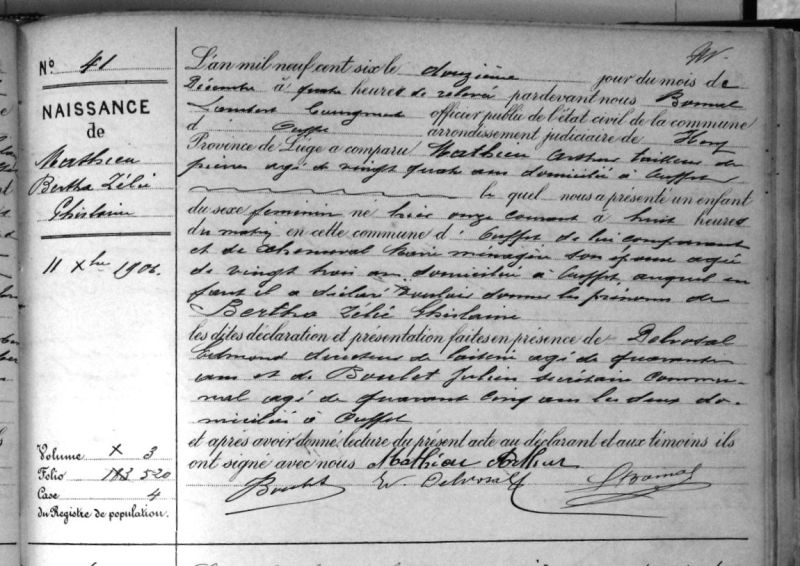 N° 41
NAISSANCE
de
Mathieu
Bertha Zélie
Ghislaine
11 Xbre 1906.
Volume X 3
Folio 183 520
Case 4
du Registre de population.
L'an mil neuf cent six le douzième jour du mois de
Décembre à quatre heures de relevée pardevant nous Bomal
Lambert officier public de l'état civil de la commune
d' Ouffet arrondissement judiciaire de Huy
Province de Liège a comparu Mathieu Arthur tailleur de
pierres agé de vingt quatre ans domicilié à Ouffet
le quel nous a présenté un enfant
du sexe feminin né hier onze courant à huit heures
du matin en cette commune d' Ouffet de lui comparant
et de Marie ménagère son épouse agée
de vingt trois ans domiciliée à Ouffet auquel en
fant il a déclaré vouloir donner les prénoms de
Bertha Zélie Ghislaine
les dites déclaration et présentation faites en présence de Delvosal
Edmond directeur de laiterie agé de quarante
ans et de Boulet Julien secrétaire commu-
nal agé de quarante cinq ans les deux do-
miciliés à Ouffet
et après avoir donné lecture du présent acte au déclarant et aux témoins ils
ont signé avec nous Mathieu Arthur
Boulet Delvosal LBomal